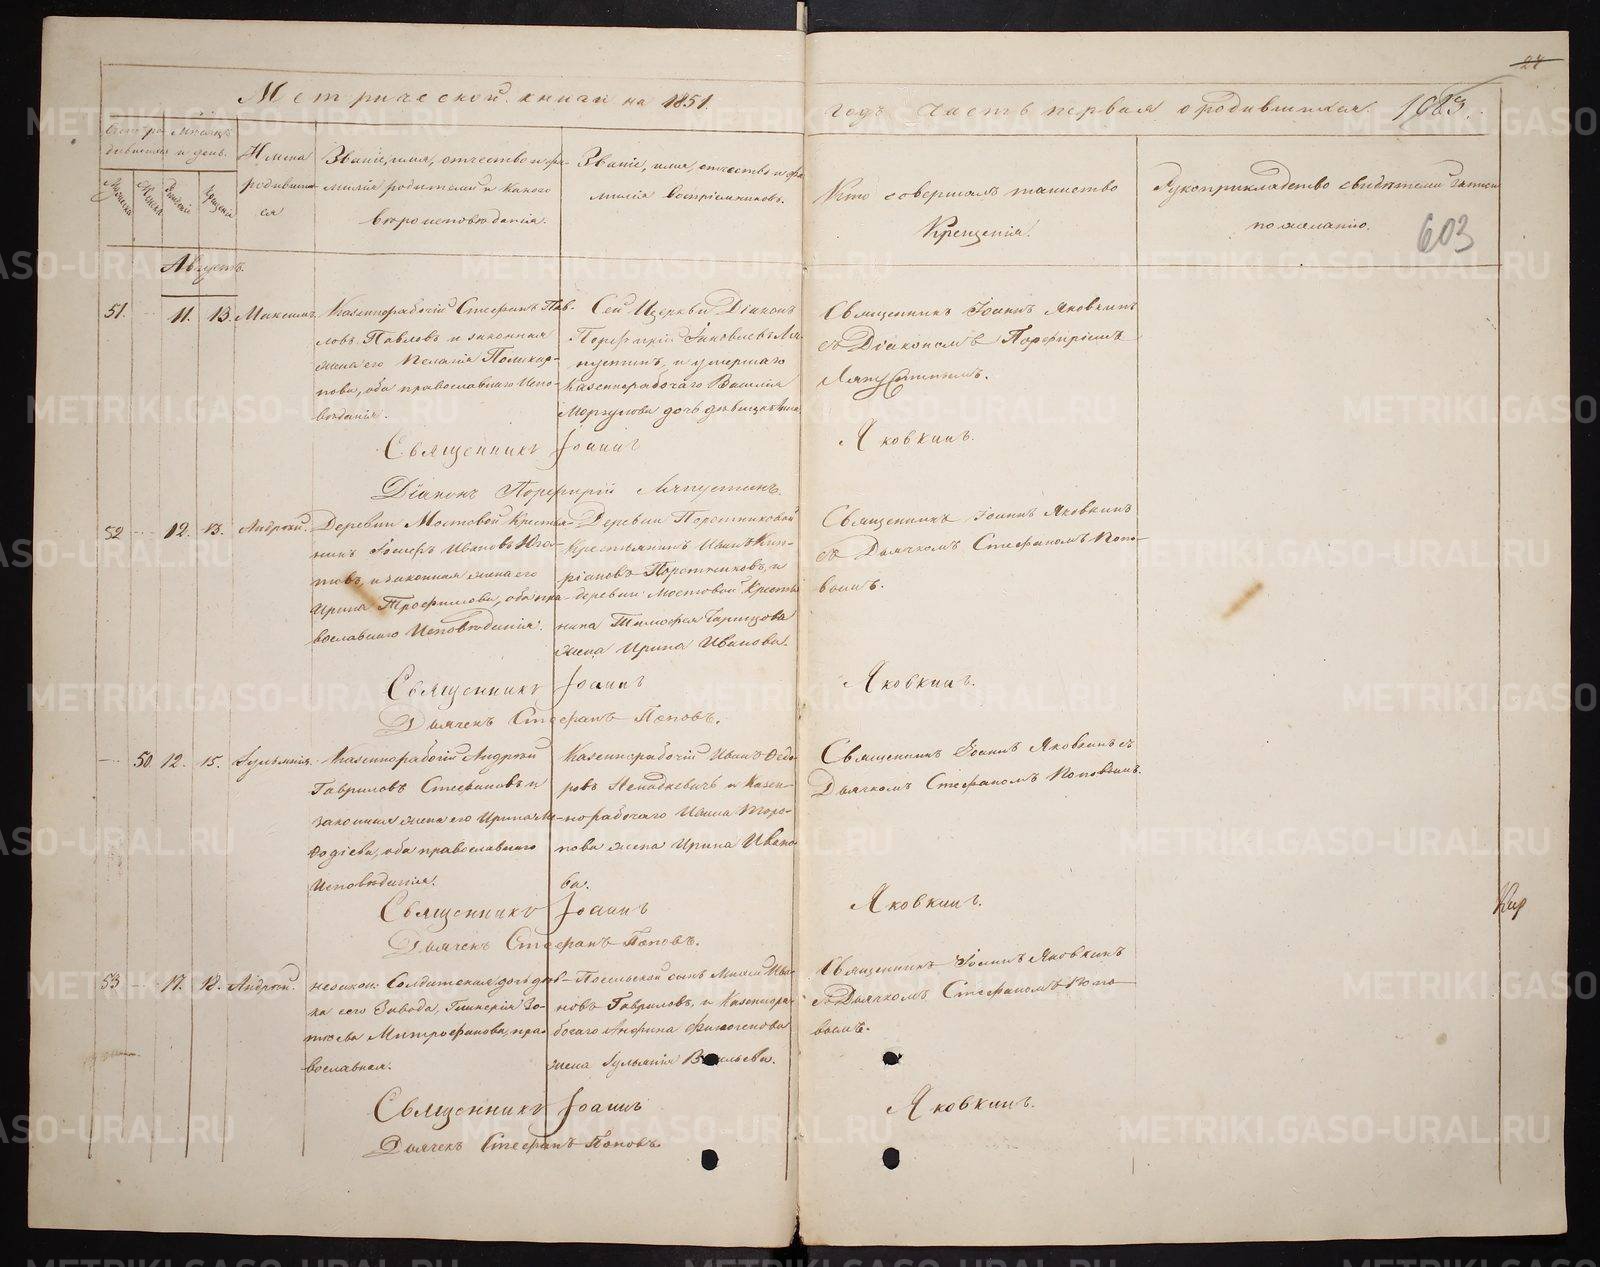 Метрической книги на 1851.
годъ часть первая о родившихся.
1083.
28
603
Счетъ родившихся
Мѣсяцъ и день.
Мужеска
Женска
Рожденія
Крещенія
Имена
родившихся
Званіе, имя, отчество и фамилія родителей и какого
вѣроисповѣданія.
Званіе, имя, отчество и фамилія воспріемниковъ.
Кто совершалъ таинство
Крещенія.
Рукоприкладство свидѣтелей записи
по желанію.
Августъ.
51. 11. 13. Максимъ.
Казеннорабочій Стефанъ Павловъ Павловъ и законная
жена его Пелагія Поликарпова, оба православнаго исповѣданія.
Сей Церкви Діаконъ
Порфирій Іаковлевъ Ляпустинъ, и умершаго
казеннорабочаго Василія
Моргунова дочь дѣвица
Священникъ Іоаннъ Яковкинъ
съ Діакономъ Порфиріемъ
Ляпустинымъ.
Священникъ Іоаннъ Яковкинъ.
Діаконъ Порфирій Ляпустинъ.
52 12. 13. Андрей.
Деревни Мостовой крестьянинъ Іосифъ Ивановъ
и законная жена его
Ирина Трофимова, оба православнаго исповѣданія.
Деревни Поротниковой
крестьянинъ Иванъ Кипріановъ Поротниковъ, и
деревни Мостовой крестьянина Тимофея
жена Ирина Иванова.
Священникъ Іоаннъ Яковкинъ
съ Дьячкомъ Стефаномъ Поповымъ.
Священникъ Іоаннъ Яковкинъ.
Дьячекъ Стефанъ Поповъ.
50. 12. 15. Іульянія.
Казеннорабочій Андрей
Гавриловъ Стефановъ и
законная жена его Ирина Меѳодіева, оба православнаго
исповѣданія.
Казеннорабочій Иванъ Ѳедоровъ Ненадкевичъ и казеннорабочаго Ивана
жена Ирина Иванова.
Священникъ Іоаннъ Яковкинъ съ
Дьячкомъ Стефаномъ Поповымъ.
Священникъ Іоаннъ Яковкинъ.
Дьячекъ Стефанъ Поповъ.
53 17. 18. Андрей.
незакон: Солдатская дочь дѣвка сего Завода, Гликерія
Митрофанова, православная.
сынъ
Ивановъ Гавриловъ, и Казеннорабочаго
жена Іульянія Васильева.
Священникъ Іоаннъ Яковкинъ
съ Дьячкомъ Стефаномъ Поповымъ.
Священникъ Іоаннъ Яковкинъ.
Дьячекъ Стефанъ Поповъ.
METRIKI.GASO-URAL.RU